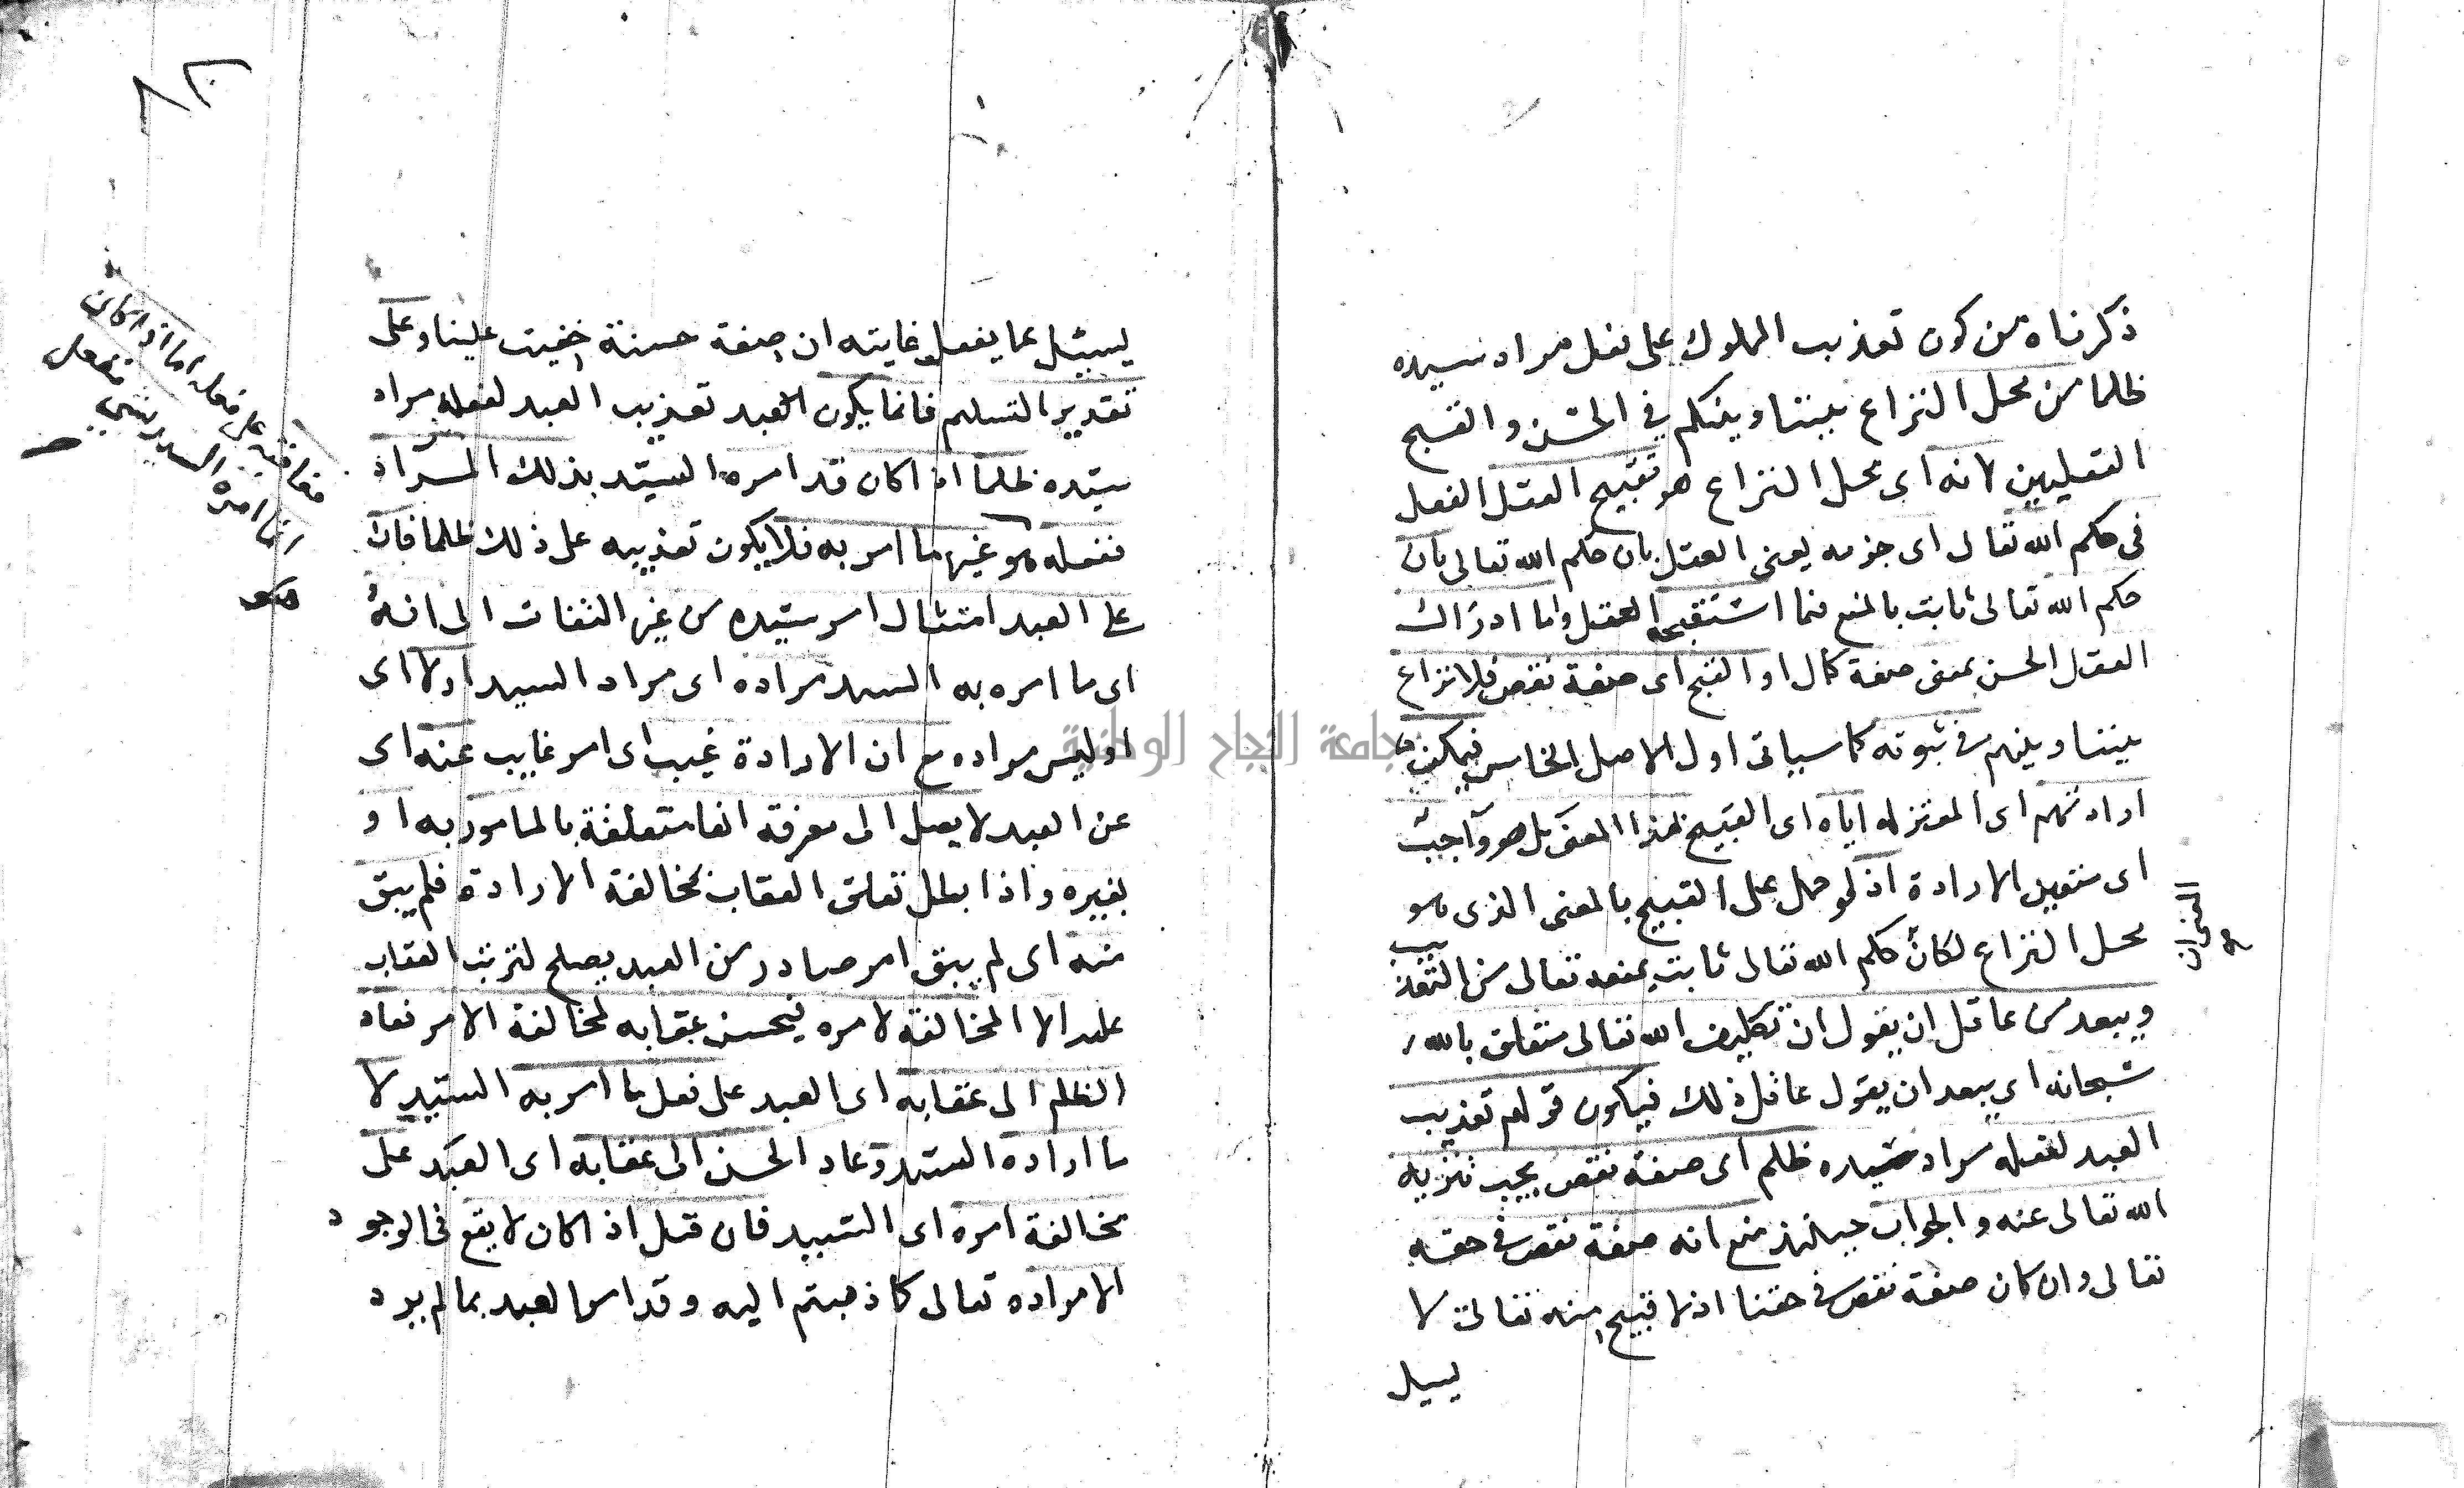 ذكرناه من كون تعذيب المملوك على فعل مراد سيده
ظلما من محل النزاع بيننا وبينكم في الحسن والقبح
العقليين لانه اى محل النزاع هو تقبيح العقل الفعل
فى حكم الله تعالى اى جزمه يعنى العقل بان حكم الله تعالى بان
حكم الله تعالى ثابت بالمنع فيما استقبحه العقل واما ادراك
العقل الحسن بمعنى صفة كمال او القبح اى صفة نقص فلا نزاع
بيننا وبينهم في ثبوته كما سياتى اول الاصل الخامس فيمكن
ارادتهم اى المعتزله اياه اى القبيح بهذا المعنى بل هو واجب
اى متعين الارادة اذ لو حمل على القبيح بالمعنى الذى هو
محل النزاع لكان حكم الله تعالى ثابت بمنعه تعالى من التعذيب
ويبعد من عاقل ان يقول ان تكليف الله تعالى متعلق بالله
سبحانه اى يبعد ان يقول عاقل ذلك فيكون قولهم تعذيب
العبد لفعله مراد سيده ظلم اى صفة نقص يجب تنزيه
الله تعالى عنه والجواب حينئذ منع انه صفة نقص في حقه
تعالى وان كان صفة نقص في حقنا اذ لا قبيح منه تعالى لا
يسيل
يسئل عما يفعل وغايته ان صفة حسنة خفيت علينا وعلى
تقدير التسليم فانما يكون العبد تعذيب العبد لفعله مراد
سيده ظلما اذا كان قد امره السيد بذلك المراد
ففعله هو غير ما امر به فلا يكون تعذيبه على ذلك ظلما فان
على العبد امتثال امر سيده من غير التفات الى انه
اى ما امره به السيد مراده اى مراد السيد اولا اى
اوليس مراده مع ان الارادة غيب اى امر غايب عنه اى
عن العبد لا يصل الى معرفة انها متعلقة بالمامور به او
بغيره واذا بطل تعلق العقاب بمخالفة الارادة فلم يبق
منه اى لم يبق امر صادر من العبد يصلح لترتب العقاب
عليه الا المخالفة لامره فيحسن عقابه لمخالفة الامر فعاد
الظلم الى عقابه اى العبد على فعل ما امر به السيد لا
ما اراده السيد وعاد الحسن الى عقابه اى العبد على
مخالفة امره اى السيد فان قيل اذا كان لا يقع فى الوجود
الا مراده تعالى كما ذهبتم اليه وقد امر العبد بما لم يرد